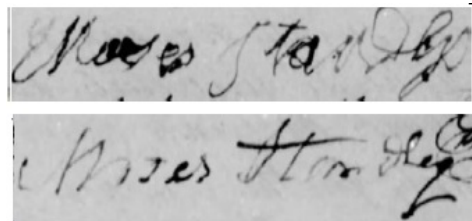 Moses Standly
Moses Standley